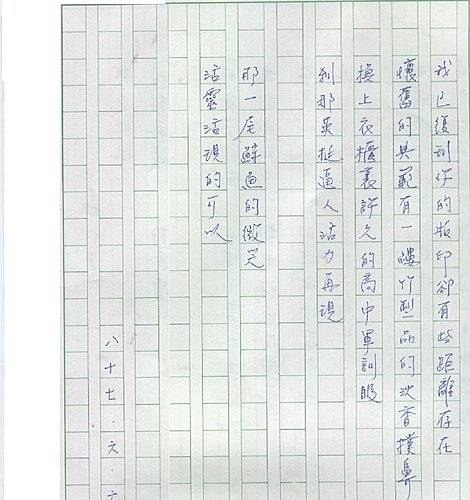 我已復到你的版印卻有些距離存在
懷舊的典範有一縷竹型品的淡香撲鼻
換上衣櫃裏許久的高中軍訓服
剎那英挺逼人活力再現
那一尾鮮魚的微笑
活靈活現的可以
八十七．六．